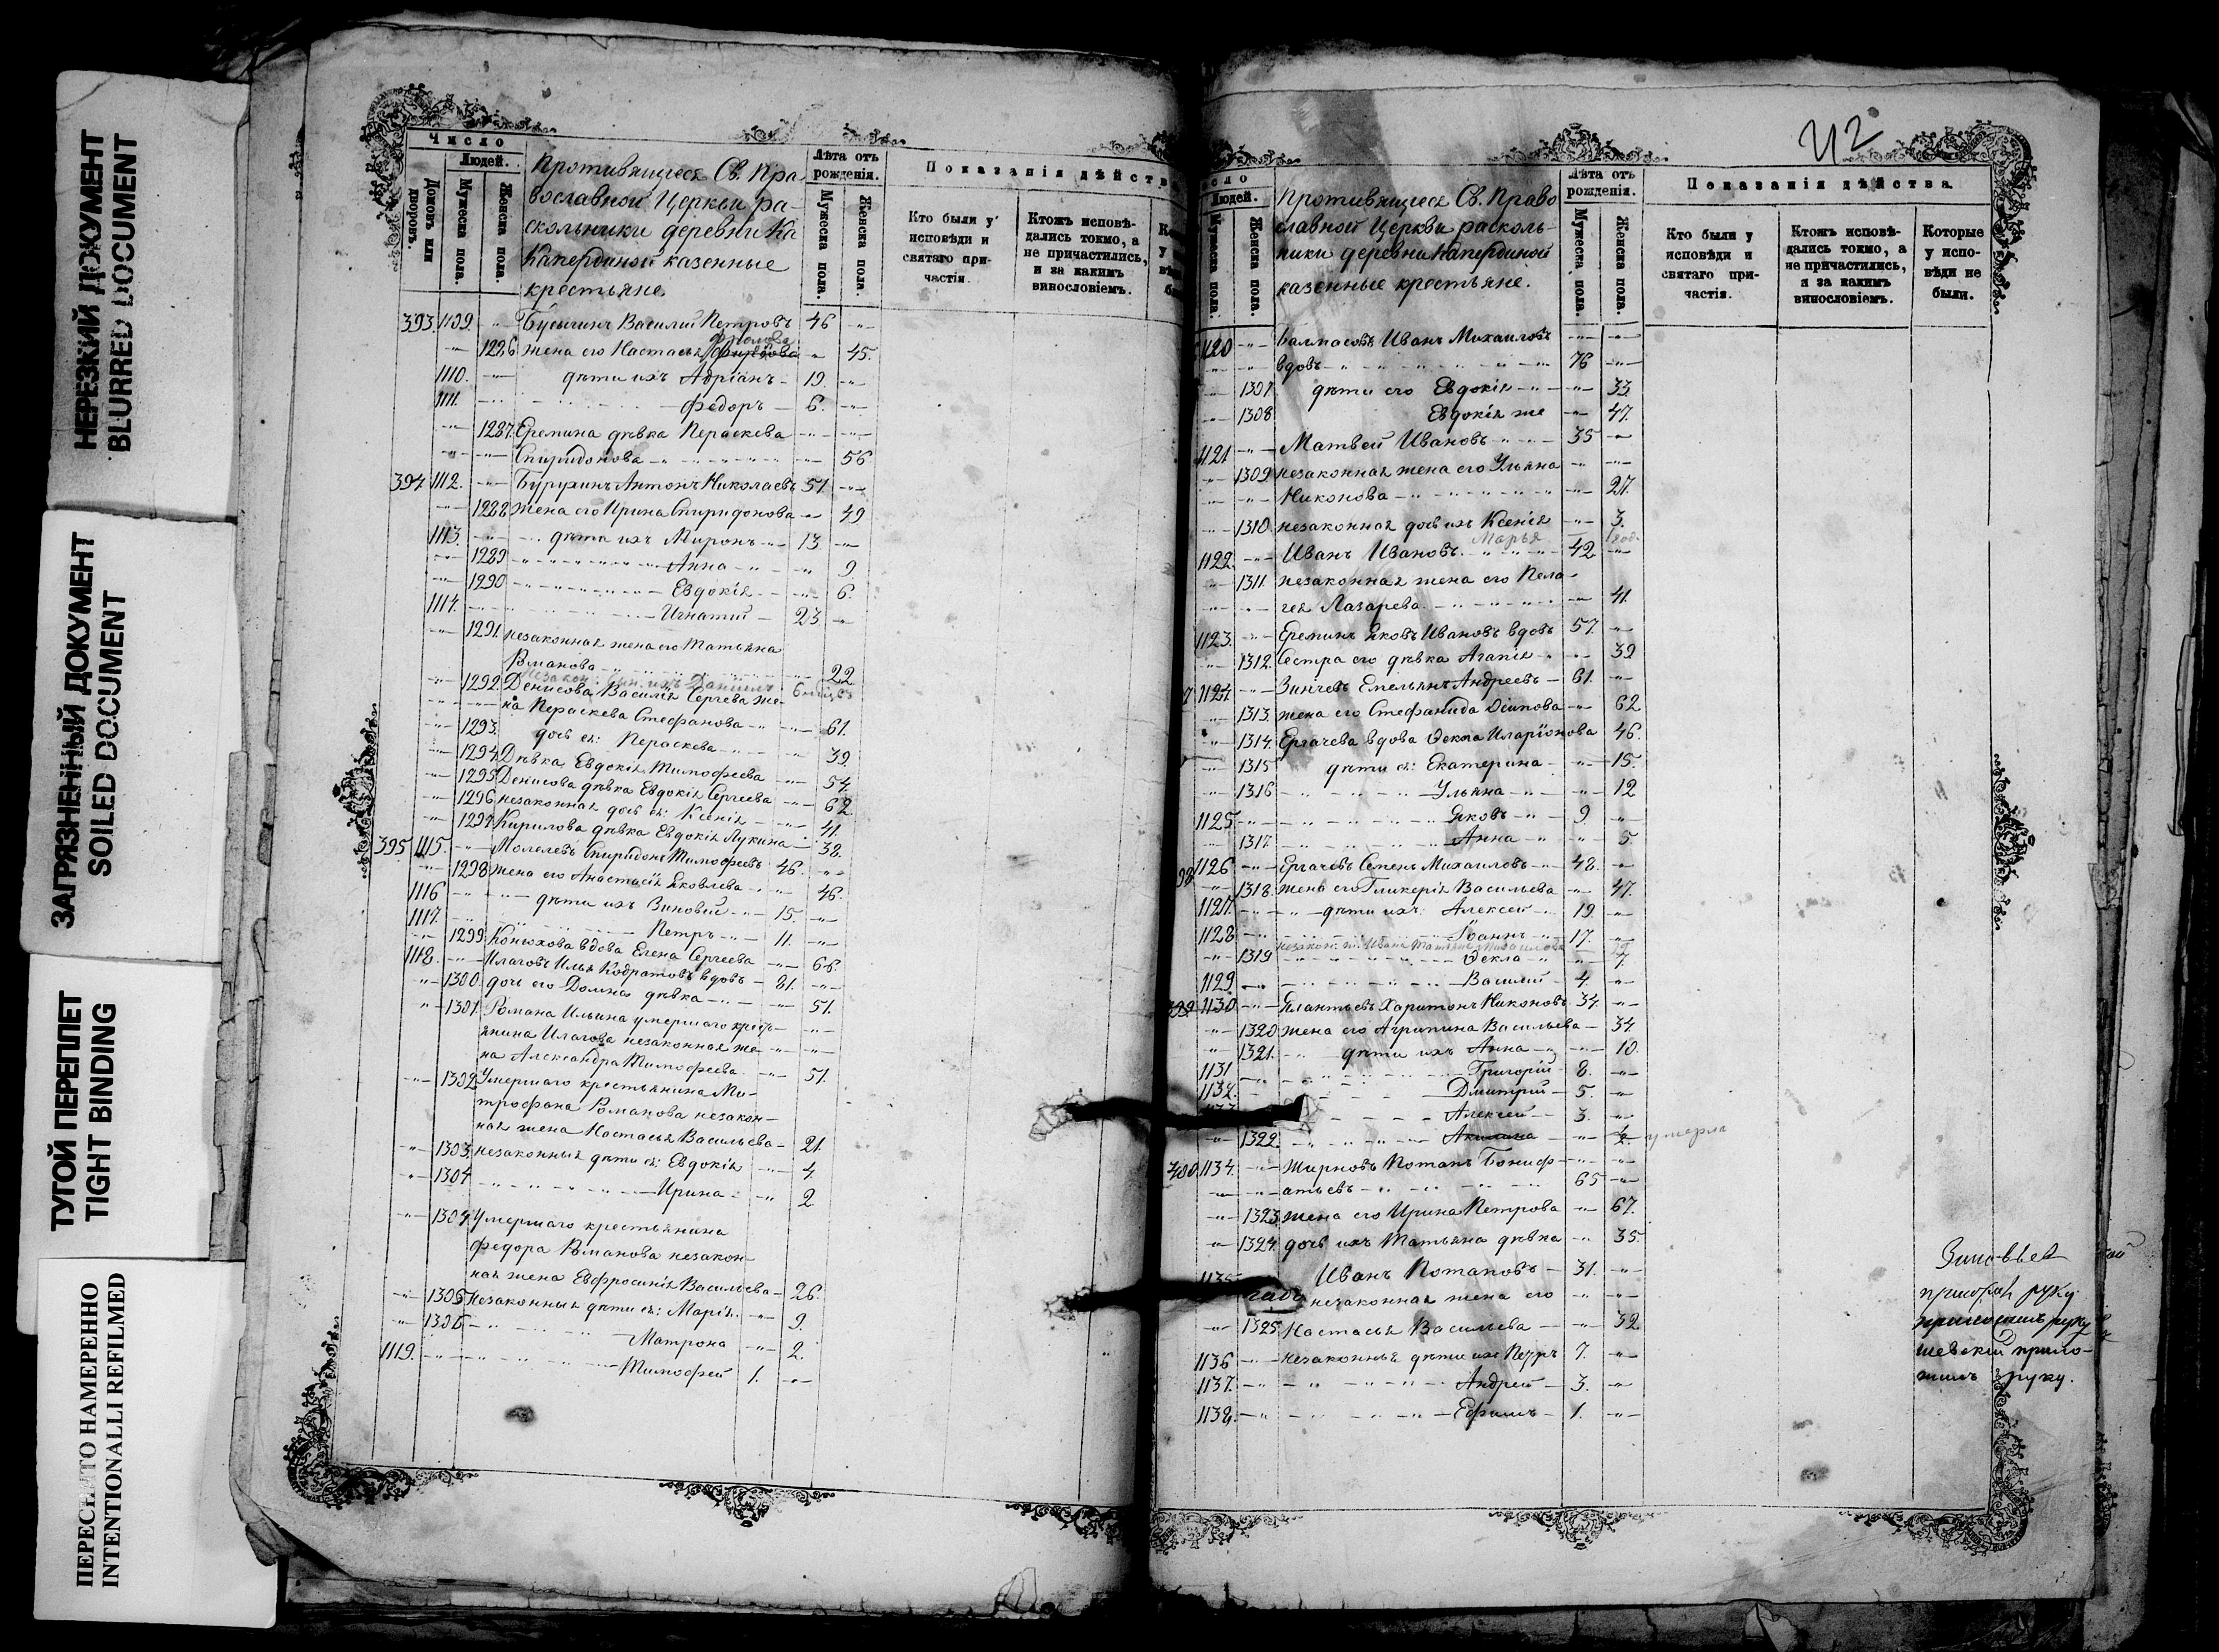 НЕРЕЗКИЙ ДОКУМЕНТ
BLURRED DOCUMENT
ЗАГРЯЗНЕННЫЙ ДОКУМЕНТ
SOILED DOCUMENT
ТУГОЙ ПЕРЕПЛЕТ
TIGHT BINDING
ПЕРЕСНЯТО НАМЕРЕННО
INTENTIONALLI REFILMED
Число
Людей.
Домовъ или дворовъ.
Мужеска пола.
Женска пола.
Противящіеся Св. Пра-
вославной Церкви ра-
скольники деревни Ка
Капердиной казенные
крестьяне
Лѣта отъ рожденія.
Мужеска пола.
Женска пола.
Показанія дѣйства
Кто были у исповѣди и святаго причастія.
Ктожъ исповѣдались токмо, а не причастились, и за какимъ винословіемъ.
393. 1109. Бусыгинъ Василій Петровъ 46
Фролова
1286 жена его Настасья 45.
1110. дѣти ихъ Адріанъ 19.
1111. Федоръ 6.
1287. Еремина дѣвка Пераскева
Спиридонова 56
394 1112. Бурухинъ Антонъ Николаевъ 51
1288 жена его Ирина Спиридонова 49
1113. дѣти ихъ Миронъ 13
1289 Анна 9.
1290 Евдокія 6.
1114. Игнатій 23
1291. незаконная жена его Татьяна
Романова 22
незакон. сын. ихъ Даніилъ 6
1292 Денисова Василія Сергева же-
на Пераскева Стефанова 61.
1293. дочь ея: Пераскева 39.
1294. Дѣвка Евдокія Тимофеева 54
1295 Денисова дѣвка Евдокія Сергеева 62
1296 незаконная дочь ея: Ксенія 41.
1297 Кирилова дѣвка Евдокія Лукина 38.
395 1115. Спиридонъ Тимофеевъ 46.
1298 жена его Анастасія Яковлева 46.
1116 дѣти ихъ Зиновій 15.
1117. Петръ 11.
1299 Конюхова вдова Елена Сергеева 66.
1118. Илья Кодратовъ вдовъ 81.
1300. дочь его Домна дѣвка 51.
1301. Романа Ильина умершаго крест-
янина незаконная же-
на Александра Тимофеева 51.
1302 Умершаго крестьянина Ми-
трофана Романова незакон-
ная жена Настасья Васильева 21.
1303 незаконныя дѣти ея: Евдокія 4.
1304 Ирина 2
1304 Умершаго крестьянина
Федора Романова незакон
ная жена Евфросинія Васильева 26.
1305 Незаконныя дѣти ея: Марія 9
1306 Матрона 2.
1119. Тимофей 1.
42
Людей.
Мужеска пола.
Женска пола.
Противящіеся Св. Право
славной Церкви расколь-
ники деревни Капердиной
казенные крестьяне.
Лѣта отъ рожденія.
Мужеска пола.
Женска пола.
Показанія дѣйства.
Кто были у исповѣди и святаго причастія.
Ктожъ исповѣдались токмо, а не причастились, и за какимъ винословіемъ.
Которые у исповѣди не были.
1120 Балмасовъ Иванъ Михаиловъ
вдовъ 76
1307 дѣти его Евдокія 33
1308 Евдокія же 47.
1121 Матвей Ивановъ 35
1309 незаконная жена его Ульяна
Никонова 27.
1310. незаконная дочь ихъ Ксенія 3.
Марья
1122. Иванъ Ивановъ 42
1311 незаконная жена его Пела-
гея Лазарева 41.
1123. Ереминъ Яковъ Ивановъ вдовъ 57.
1312. Сестра его дѣвка Агапія 39
1124 Зинчевъ Емельянъ Андреевъ 61.
1313. жена его Стефанида Осипова 62
1314. Ергачева вдова Ѳекла Иларіонова 46.
1315 дѣти ея: Екатерина 15.
1316 Ульяна 12
1125 Яковъ 9.
1317. Анна 5.
1126 Ергачевъ Семенъ Михаиловъ 48.
1318. жена его Гликерія Васильева 47.
1127. дѣти ихъ: Алексей 19.
1128 Іоаннъ 17.
незакон. ж. Ивана Татьяна Михаилова
1319 Ѳекла 7.
1129 Василий 4.
1130 Харитонъ Никоновъ 34.
1320 жена его Агрипина Васильева 34.
1321. дѣти ихъ Анна 10.
1131 Григорій 8.
1132. Дмитрій 5.
Алексей 3.
1322. Акилина умерла
400 1134. Жирновъ Потапъ Бониф-
атьевъ 65
1323 жена его Ирина Петрова 67.
1324. дочь ихъ Татьяна дѣвка 35.
Иванъ Потаповъ 31.
незаконная жена его
1325 Настасья Васильева 32
1136 незаконныя дѣти ихъ Петръ 7.
1137. Андрей 3.
1138. Ефимъ 1.
руку
руку
шевскій прило-
жилъ руку.